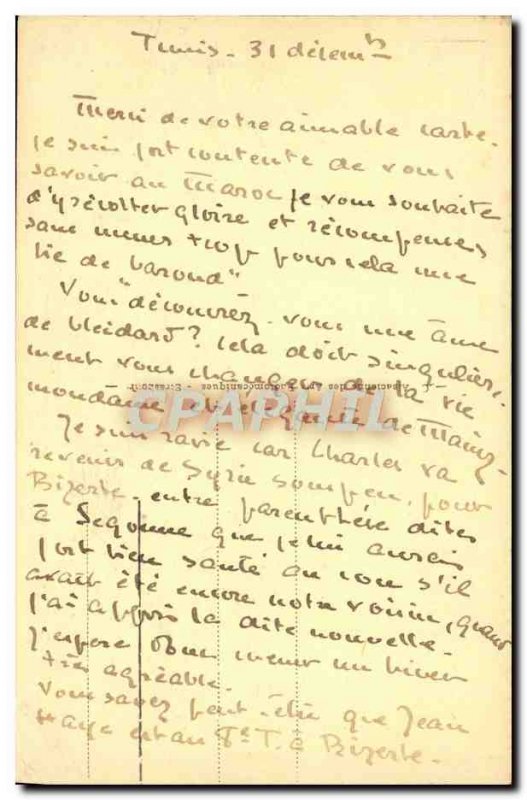 Tunis - 31 décemb
Merci de votre aimable carte.
je suis fort contente de vous
savoir au Maroc je vous souhaite
d'y récolter gloire et récompenses
sans mener trop pour cela une
vie de baroud"
Vous "découvrez-vous une âme
de bleidard? Cela doit singulière-
ment vous changer de la vie
mondaine et élégante de
Je suis ravie car Charles va
revenir de Syrie pour
Bizerte. entre parenthèse dites
à Segonne que je lui aurais
fort bien sauté au cou s'il
avait été encore notre voisin, quand
j'ai appris la dite nouvelle.
J'espère donc mener un hiver
très agréable.
Vous savez peut-être que Jean
Haye est au 8e T. à Bizerte.
CPAPHIL